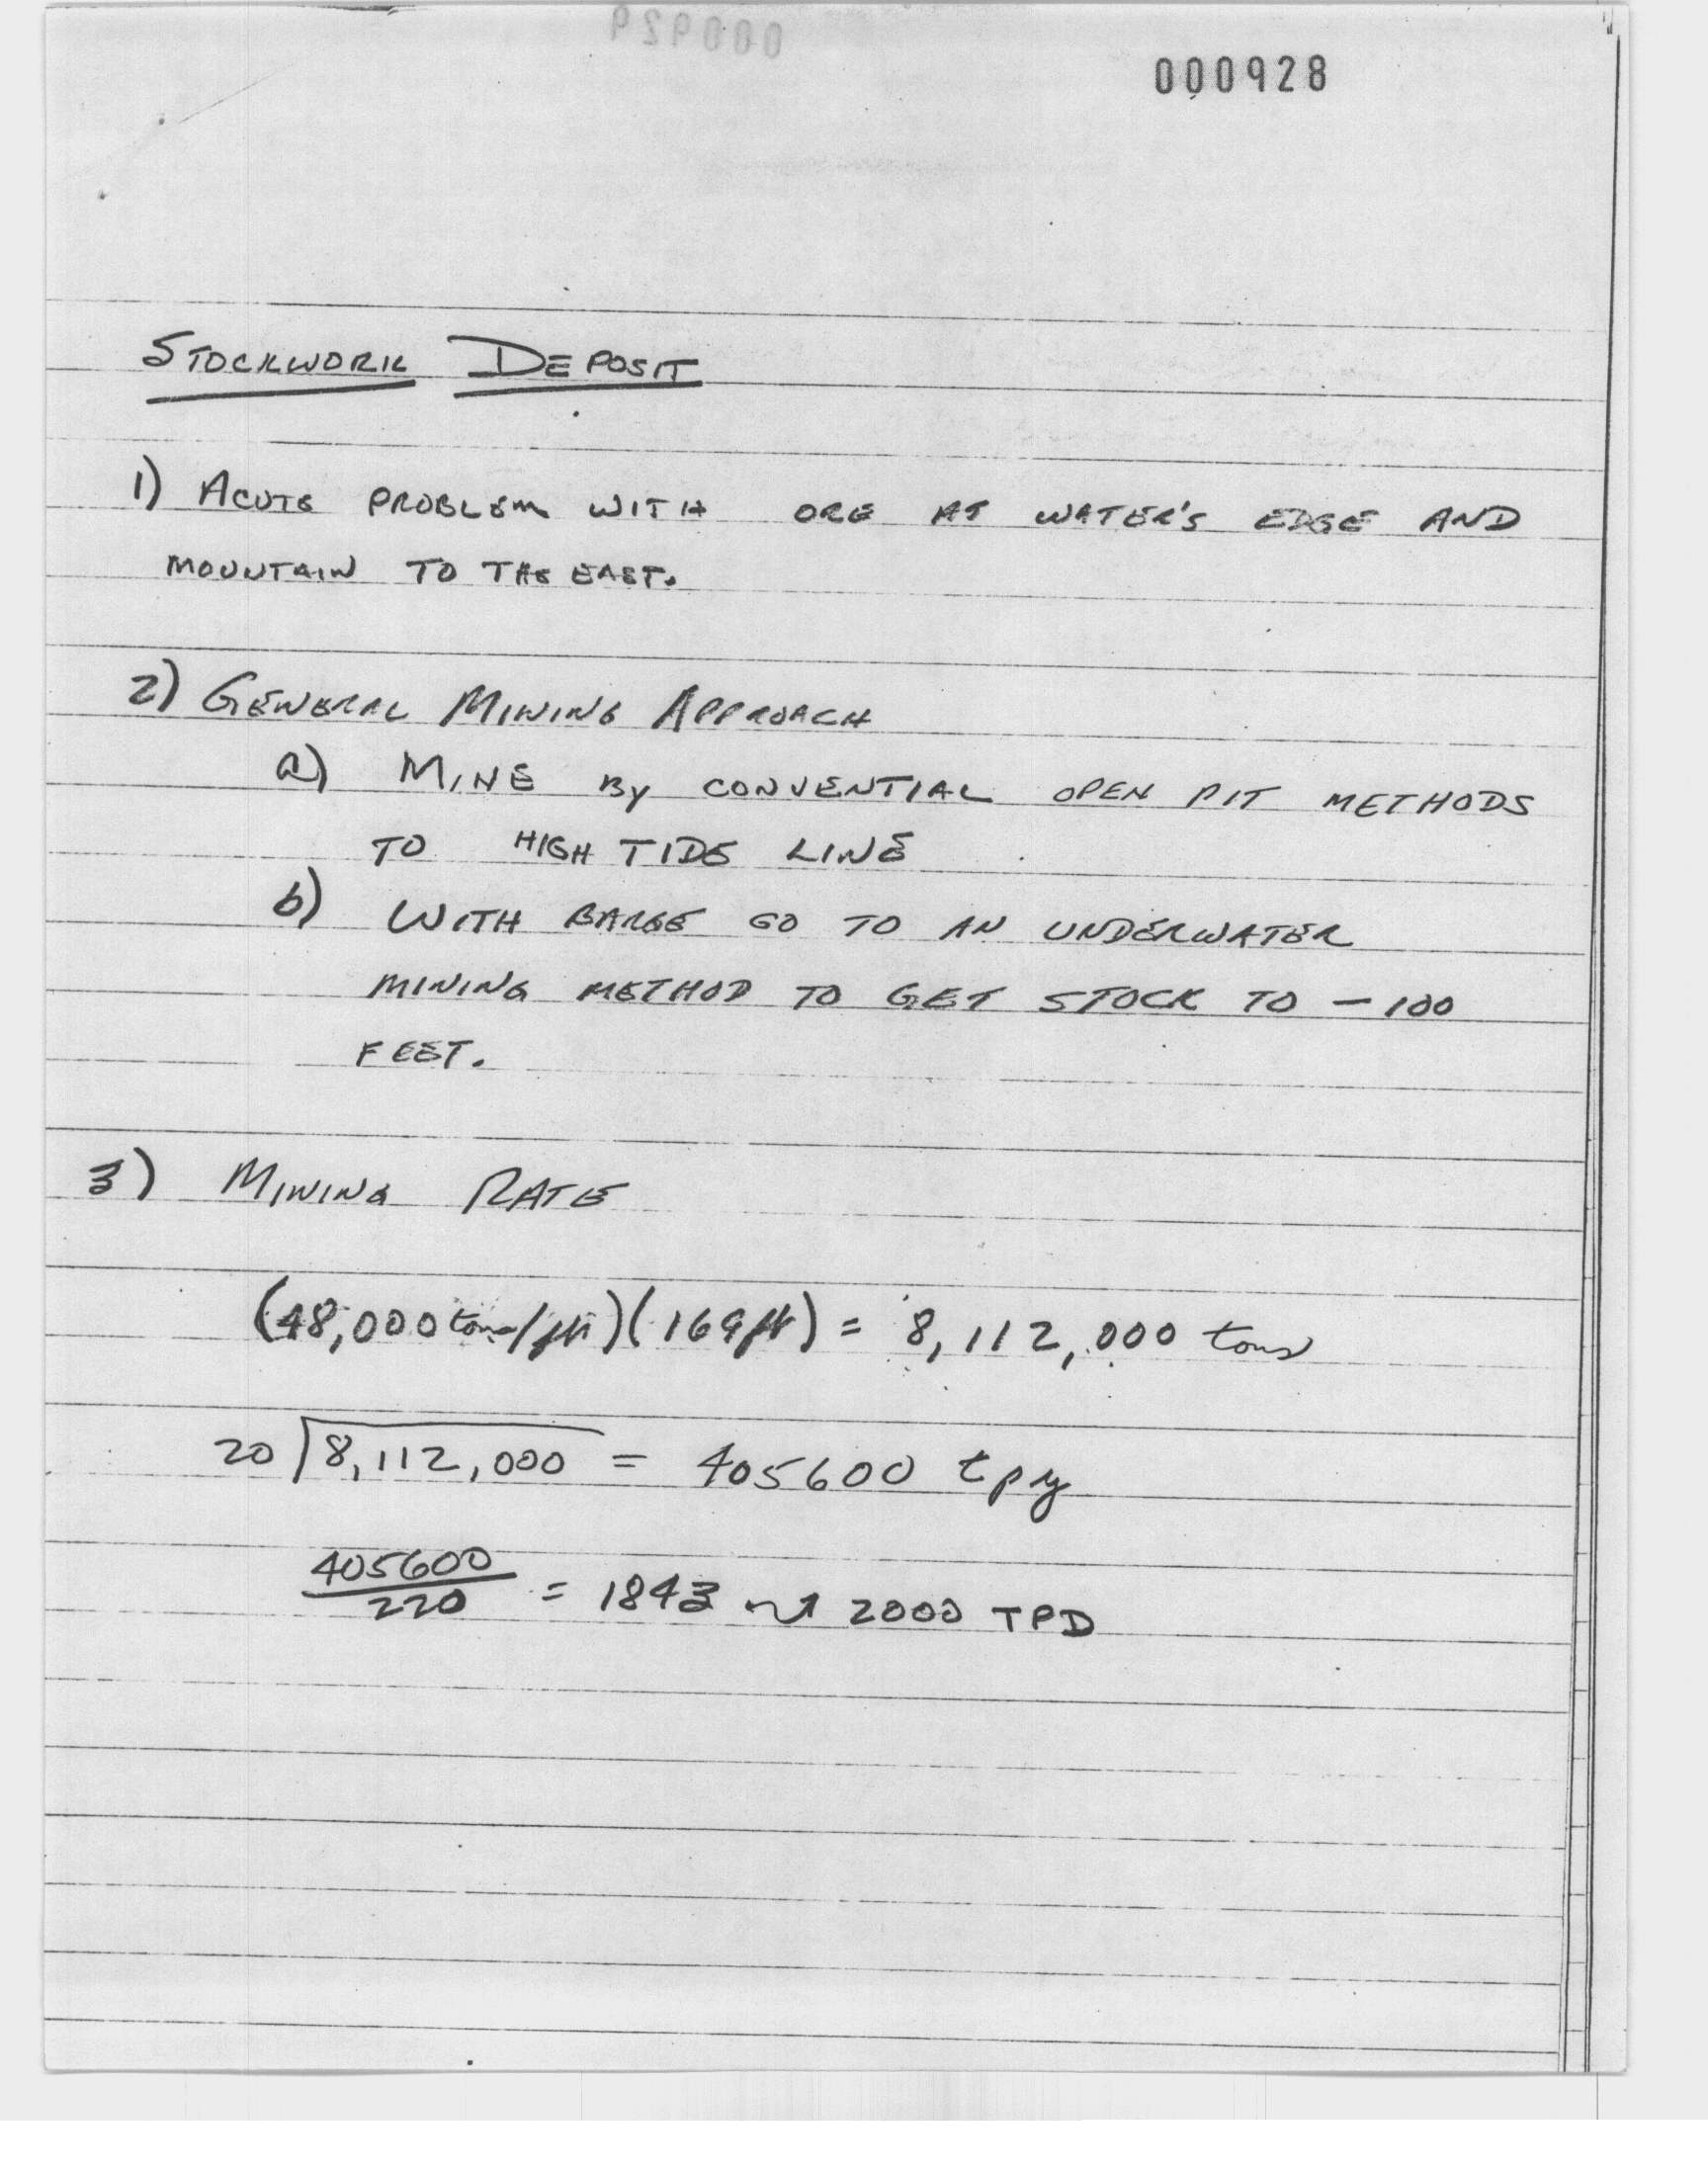 000929
000928
STOCKWORK DEPOSIT
1) ACUTE PROBLEM WITH ORE AT WATER'S EDGE AND
MOUNTAIN TO THE EAST.
2) GENERAL MINING APPROACH
a) MINE By CONVENTIAL OPEN PIT METHODS
TO HIGH TIDE LINE
b) WITH BARGE GO TO AN UNDERWATER
MINING METHOD TO GET STOCK TO - 100
FEET.
3) MINING RATE
(48,000 tons/ft)(169 ft) = 8,112,000 tons
20 ) 8,112,000 = 405600 tpy
405600
220 = 1843 ~ 2000 TPD